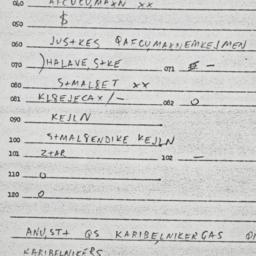 040 AFCUCUMAXN XX
050 $
060 JUSTKES QAFCUMAXNEMKEJMEN
070 )HALAVE STKE 071 $ -
080 STMALSET XX
081 KLSEJECAX/- 082 O
090 KEJLN
100 STMALSENDIKE KEJLN
101 ZTAR 102 -
110 O
120 O
ANUST+ QS KARIBELNIKERGAS
KARIBELNIKERS